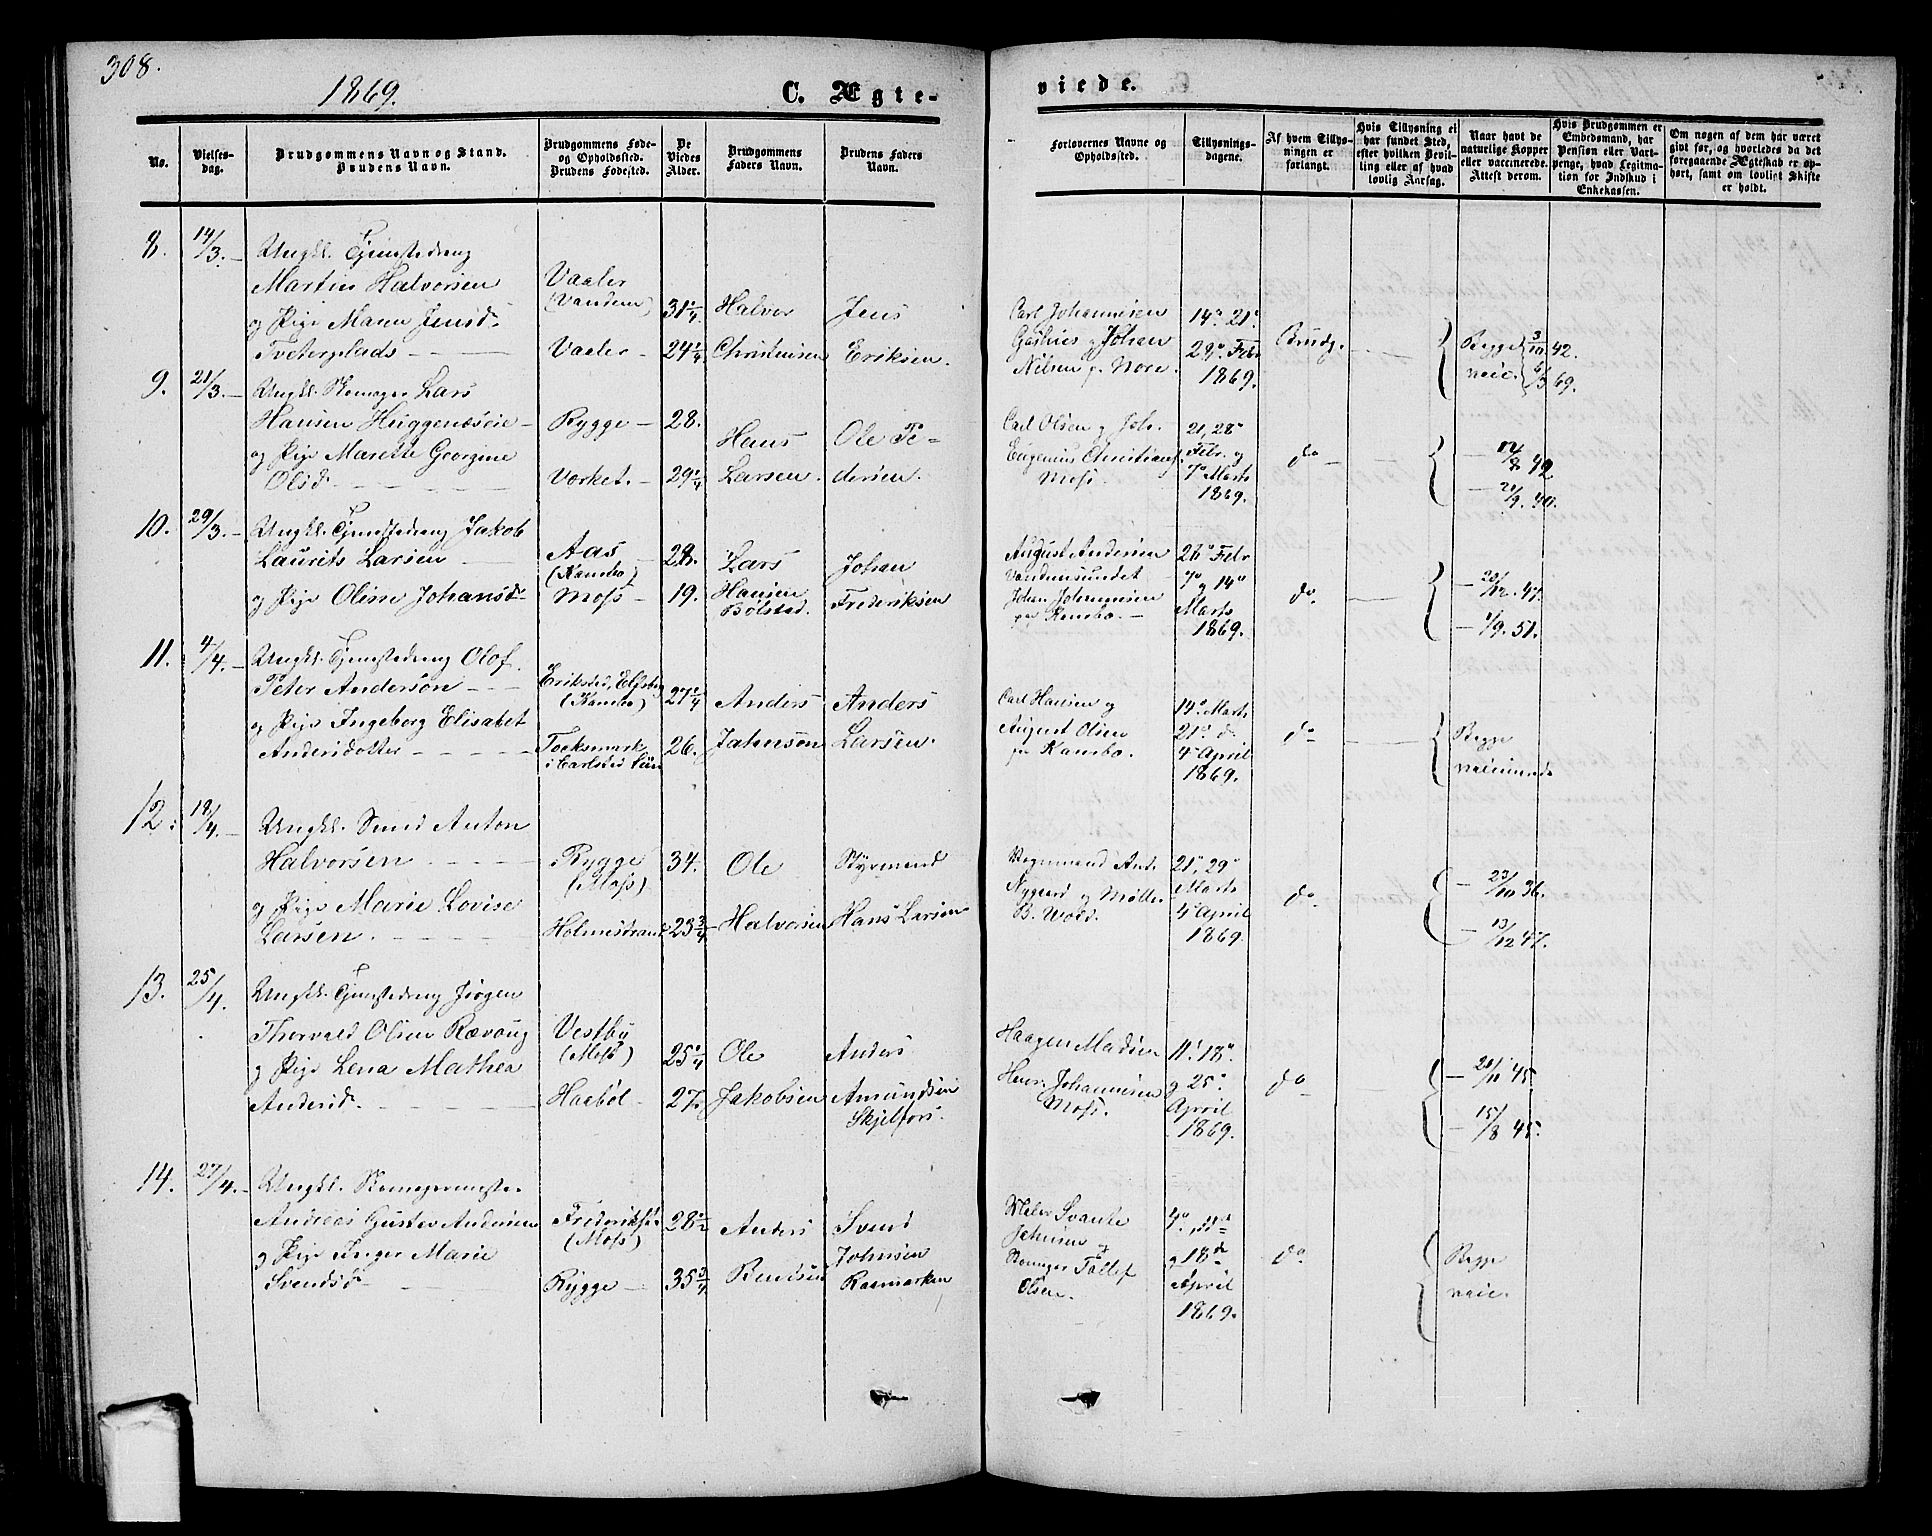 308.
1869.
C. Ægte-
viede.
No.
Vielses-
dag.
Brudgommens Navn og Stand.
Brudens Navn.
Brudgommens Føde-
og Opholdssted.
Brudens Fødested.
De
Viedes
Alder.
Brudgommens
Faders Navn.
Brudens Faders
Navn.
Forlovernes Navne og
Opholdssted.
Tillysnings-
dagene.
Af hvem Tillys-
ningen er
forlangt.
Hvis Tillysning ei
har fundet Sted,
efter hvilken Bevil-
ling eller af hvad
lovlig Aarsag.
Naar havt de
naturlige Kopper
eller vaccinerede.
Attest derom.
Hvis Brudgommen er
Embedsmand, har
Pension eller Vart-
penge, hvad Legitma-
tion for Indskud i
Enkekassen.
Om nogen af dem har været
givt før, og hvorledes da det
foregaaende Ægteskab er op-
hørt, samt om lovligt Skifte
er holdt.
8. 14/3. Ungkl. Tjenstedreng
Martin Halvorsen
og Pige Maren Jensd.
Tveterplads
Vaaler
Vaaler
31 1/4
24 1/4
Halvor
Christensen
Jens
Eriksen.
Carl Johannesen
og Johan
Nilsen
14de 21de
28de Febr
1869.
Brudg.
Begge 3/10 42.
vacc. 69.
9. 21/3. Ungkl. Skomager Lars
Hansen Huggenæseie
og Pige Marette Georgine
Olsd.
Rygge
Vorket.
28.
29 1/4
Hans
Larsen.
Ole Pe-
dersen.
Carl Olsen og Joh.
Eugenius Christians.
Moss.
21, 28de
Febr. og
7de Marts
1869.
do
42
10. 29/3. Ungkl. Tjenstedreng Jakob
Laurits Larsen
og Pige Oline Johansd.
Aas
(Kambo)
Moss
28.
19.
Lars
Hansen
Bølstad.
Johan
Frederiksen
August Andersen
Vandemsundet
Johan Johannesen
paa Kambo.
28de Febr
7de og 14de
Marts
1869.
do
20/12. 47.
1/9. 51.
11. 4/4. Ungkl. Tjenstedreng Olof
Peter Anderson
og Pige Ingeborg Elisabet
Andersdotter
(Kambo)
Tocksmark
i Carlstad
27 1/4
26.
Anders
Johnson
Anders
Larsen.
Carl Hansen og
August Olsen
paa Kambo.
14de Marts
21de do
4de April
1869.
do
Begge
12. 18/4. Ungkl. Smed Anton
Halvorsen
og Pige Marie Lovise
Larsen.
Rygge
(Moss)
Holmestrand
34.
23 3/4
Ole
Halvorsen
Styrmand
Hans Larsen
Ant.
Nygaard og Møller
21de, 29de
Marts
4de April
1869.
do
23/10 36.
13/12 47.
13. 25/4. Ungkl. Tjenstedreng Jørgen
Thorvald Olsen Ravaug
og Pige Lena Mathea
Andersd.
Vestby
(Moss)
Haabøl
25 1/4
27.
Ole
Jakobsen
Anders
Amundsen
Skjelfos.
Haagen Madsen
Johannesen
Moss.
11, 18de
og 25de
April
1869.
do
20/11 45.
15/8 45.
14. 27/4. Ungkl. Skomagermester
Andreas Gustav Andersen
og Pige Inger Marie
Svendsd.
(Moss)
Rygge
28 1/2
35 3/4
Anders
Svend
Johnsen
Maler Svante
Johnsen og
Skomager Tollef
Olsen.
4de, 11de
og 18de
April
1869.
do
Begge
vacc.